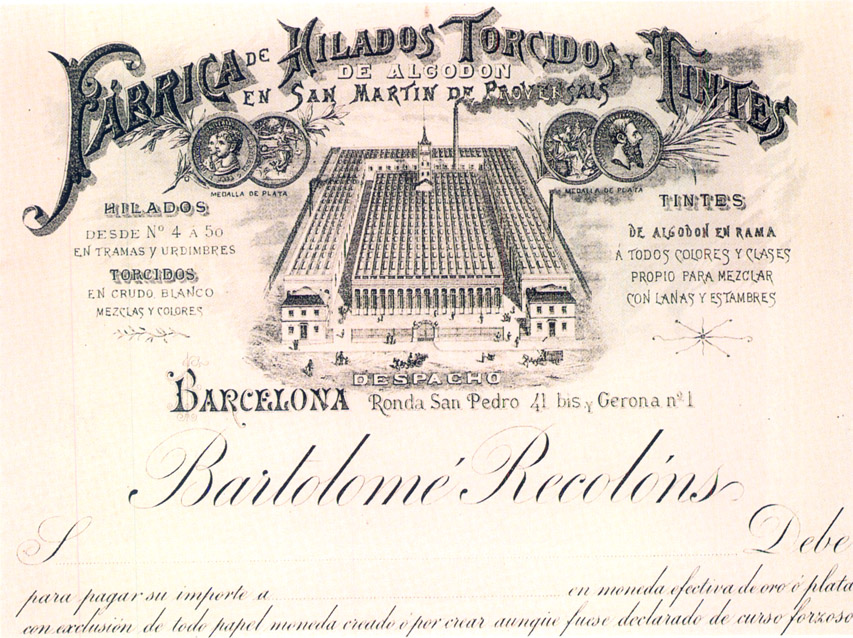 FÁBRICA DE HILADOS TORCIDOS Y TINTES
DE ALGODON
EN SAN MARTIN DE PROVENSALS
MEDALLA DE PLATA
MEDALLA DE PLATA
HILADOS
DESDE Nº 4 Á 50
EN TRAMAS Y URDIMBRES
TORCIDOS
EN CRUDO, BLANCO
MEZCLAS Y COLORES
TINTES
DE ALGODON EN RAMA
Á TODOS COLORES Y CLASES
PROPIO PARA MEZCLAR
CON LANAS Y ESTAMBRES
DESPACHO
BARCELONA Ronda San Pedro 41 bis y Gerona nº 1
Bartolomé Recolóns
S Debe
para pagar su importe a en moneda efectiva de oro ó plata
con exclusión de todo papel moneda creado ó por crear aunque fuese declarado de curso forzoso